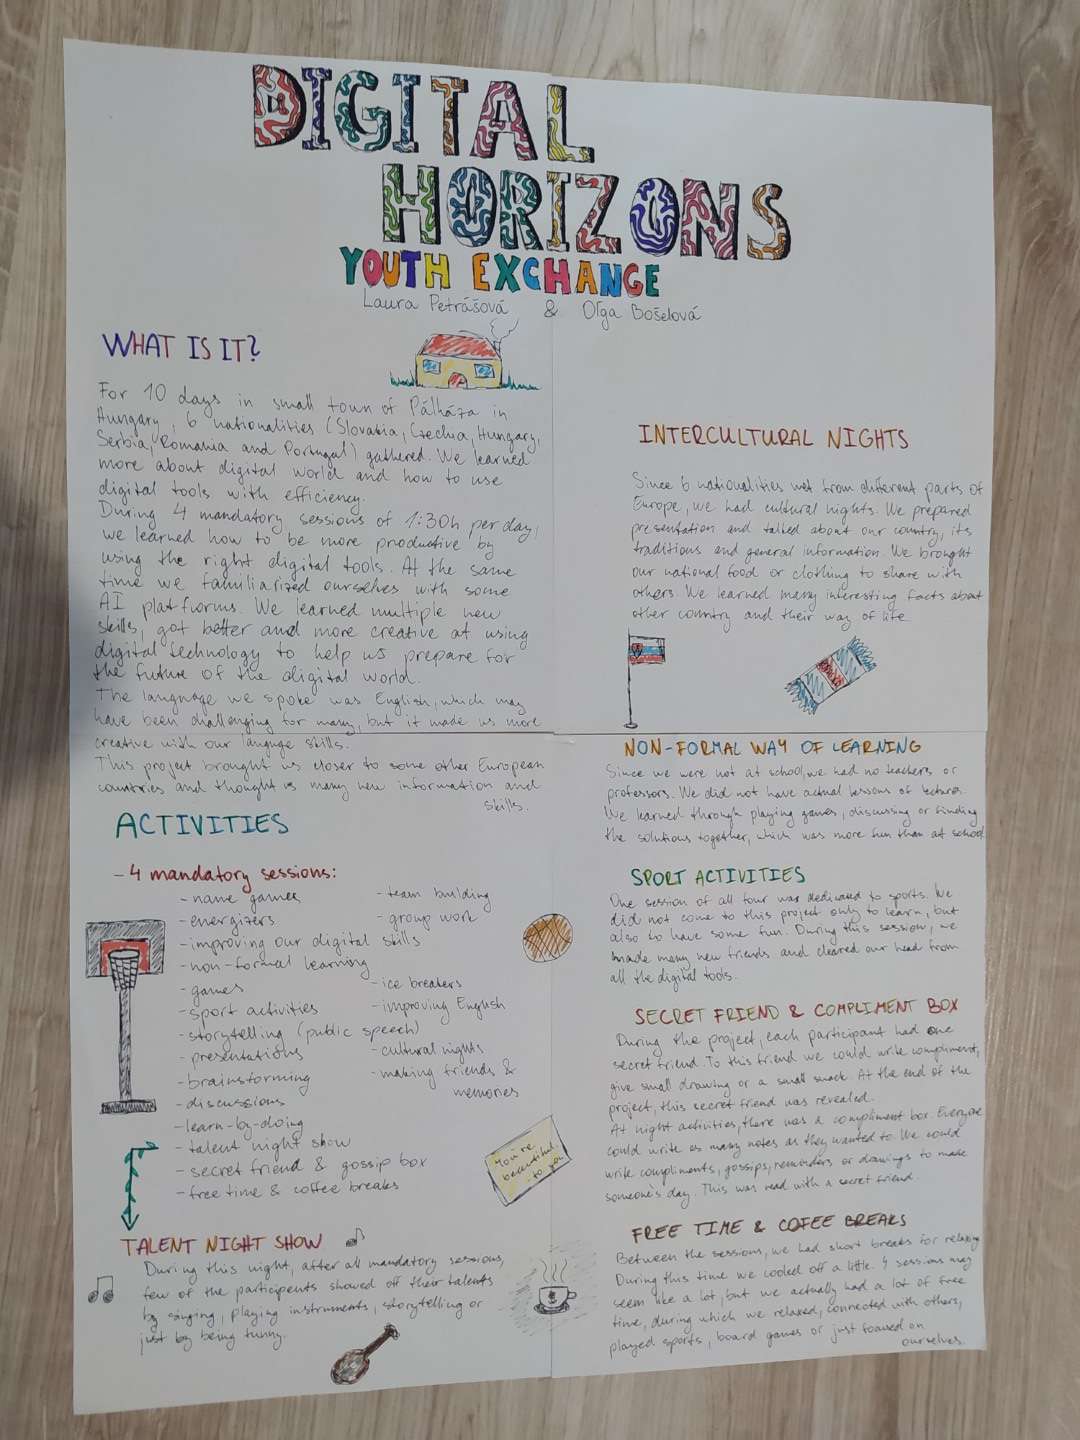 DIGITAL
HORIZONS
YOUTH EXCHANGE
Laura Petrášová & Oľga Bošelová
WHAT IS IT?
For 10 days in small town of Pálháza in
Hungary, 6 nationalities (Slovakia, Czechia, Hungary,
Serbia, Romania and Portugal) gathered. We learned
more about digital world and how to use
digital tools with efficiency.
During 4 mandatory sessions of 1:30h per day,
we learned how to be more productive by
using the right digital tools. At the same
time we familiarized ourselves with some
AI platforms. We learned multiple new
skills, got better and more creative at using
digital technology to help us prepare for
the future of the digital world.
The language we spoke was English, which may
have been challenging for many, but it made us more
creative with our languge skills.
This project brought us closer to some other European
countries and thought us many new information and
skills.
ACTIVITIES
- 4 mandatory sessions:
- name games
- energizers
- improving our digital skills
- non-formal learning
- games
- sport activities
- storytelling (public speech)
- presentations
- brainstorming
- discussions
- learn-by-doing
- talent night show
- secret friend & gossip box
- free time & coffee breaks
- team building
- group work
- ice breakers
- improving English
- cultural nights
- making friends &
memories
You're
beautiful
to you
TALENT NIGHT SHOW
During this night, after all mandatory sessions,
few of the participants showed off their talents
by singing, playing instruments, storytelling or
just by being funny.
INTERCULTURAL NIGHTS
Since 6 nationalities met from different parts of
Europe, we had cultural nights. We prepared
presentation and talked about our country, its
traditions and general information. We brought
our national food or clothing to share with
others. We learned many interesting facts about
other country and their way of life
NON-FORMAL WAY OF LEARNING
Since we were not at school, we had no teachers or
professors. We did not have actual lessons or lectures.
We learned through playing games, discussing or finding
the solutions together, which was more fun than at school.
SPORT ACTIVITIES
One session of all four was dedicated to sports. We
did not come to this project only to learn, but
also to have some fun. During this session, we
made many new friends and cleared our head from
all the digital tools.
SECRET FRIEND & COMPLIMENT BOX
During the project, each participant had one
secret friend. To this friend we could write compliment,
give small drawing or a small snack. At the end of the
project, this secret friend was revealed.
At night activities, there was a compliment box. Everyone
could write as many notes as they wanted to. We could
write compliments, gossips, reminders or drawings to made
someone's day. This was read with a secret friend.
FREE TIME & COFEE BREAKS
Between the sessions, we had short breaks for relaxing
During this time we cooled off a little. 4 sessions may
seem like a lot, but we actually had a lot of free
time, during which we relaxed, connected with others,
played sports, board games or just focused on
ourselves.